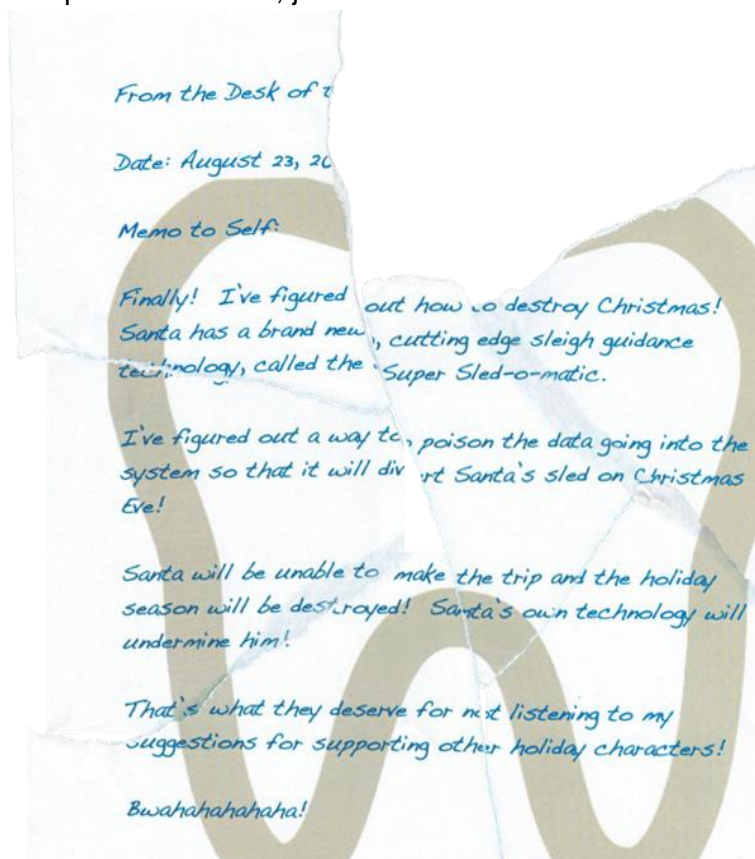 From the Desk of
Date: August 23, 20
Memo to Self:
Finally! I've figured out how to destroy Christmas!
Santa has a brand new, cutting edge sleigh guidance
technology, called the Super Sled-o-matic.
I've figured out a way to poison the data going into the
system so that it will divert Santa's sled on Christmas
Eve!
Santa will be unable to make the trip and the holiday
season will be destroyed! Santa's own technology will
undermine him!
That's what they deserve for not listening to my
suggestions for supporting other holiday characters!
Bwahahahahaha!